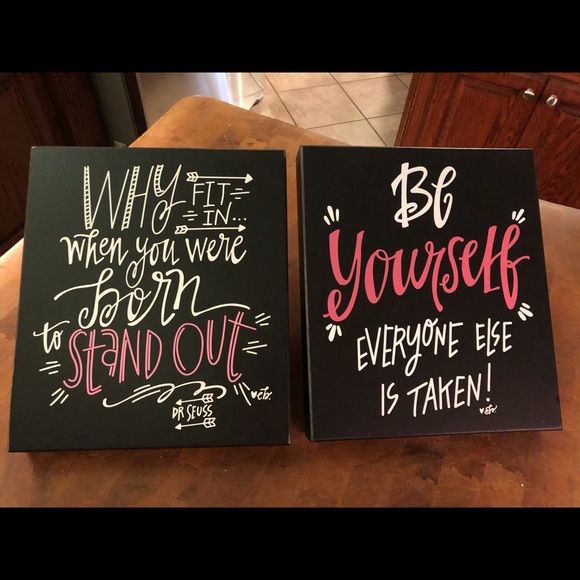 WHY FIT
IN...
when you were
born
to STAND OUT
DR SEUSS
Be
Yourself
EVERYONE ELSE
IS TAKEN!